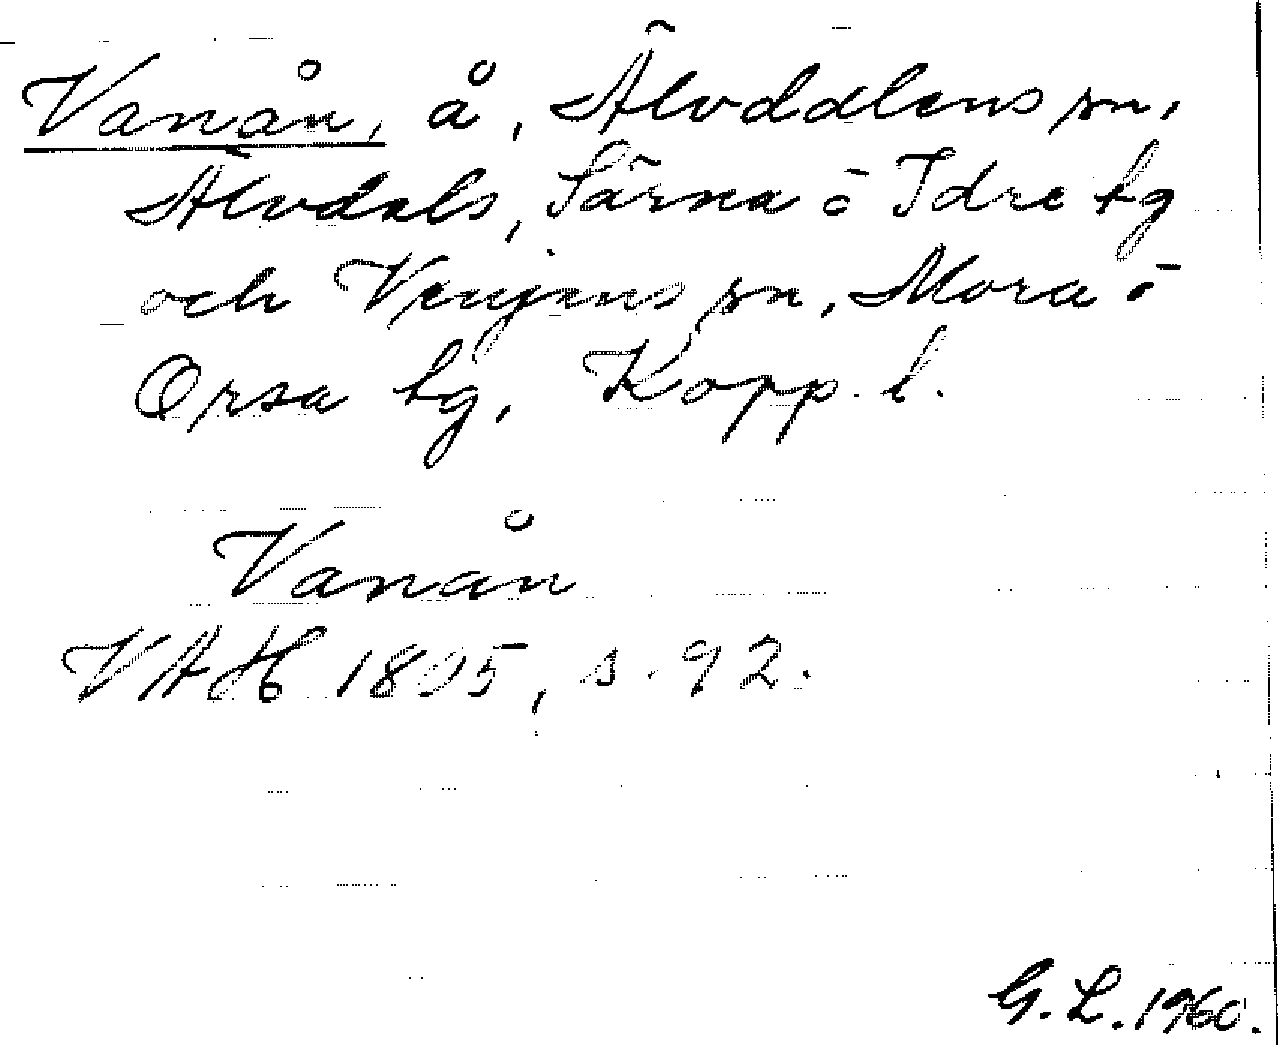 Vanån, å, Älvdalens sn,
Älvdals, Särna o Idre tg
och Venjans sn, Mora o
Orsa tg, Kopp. l.
Vanån
VAH 1895, s. 92.
G. L. 1960.